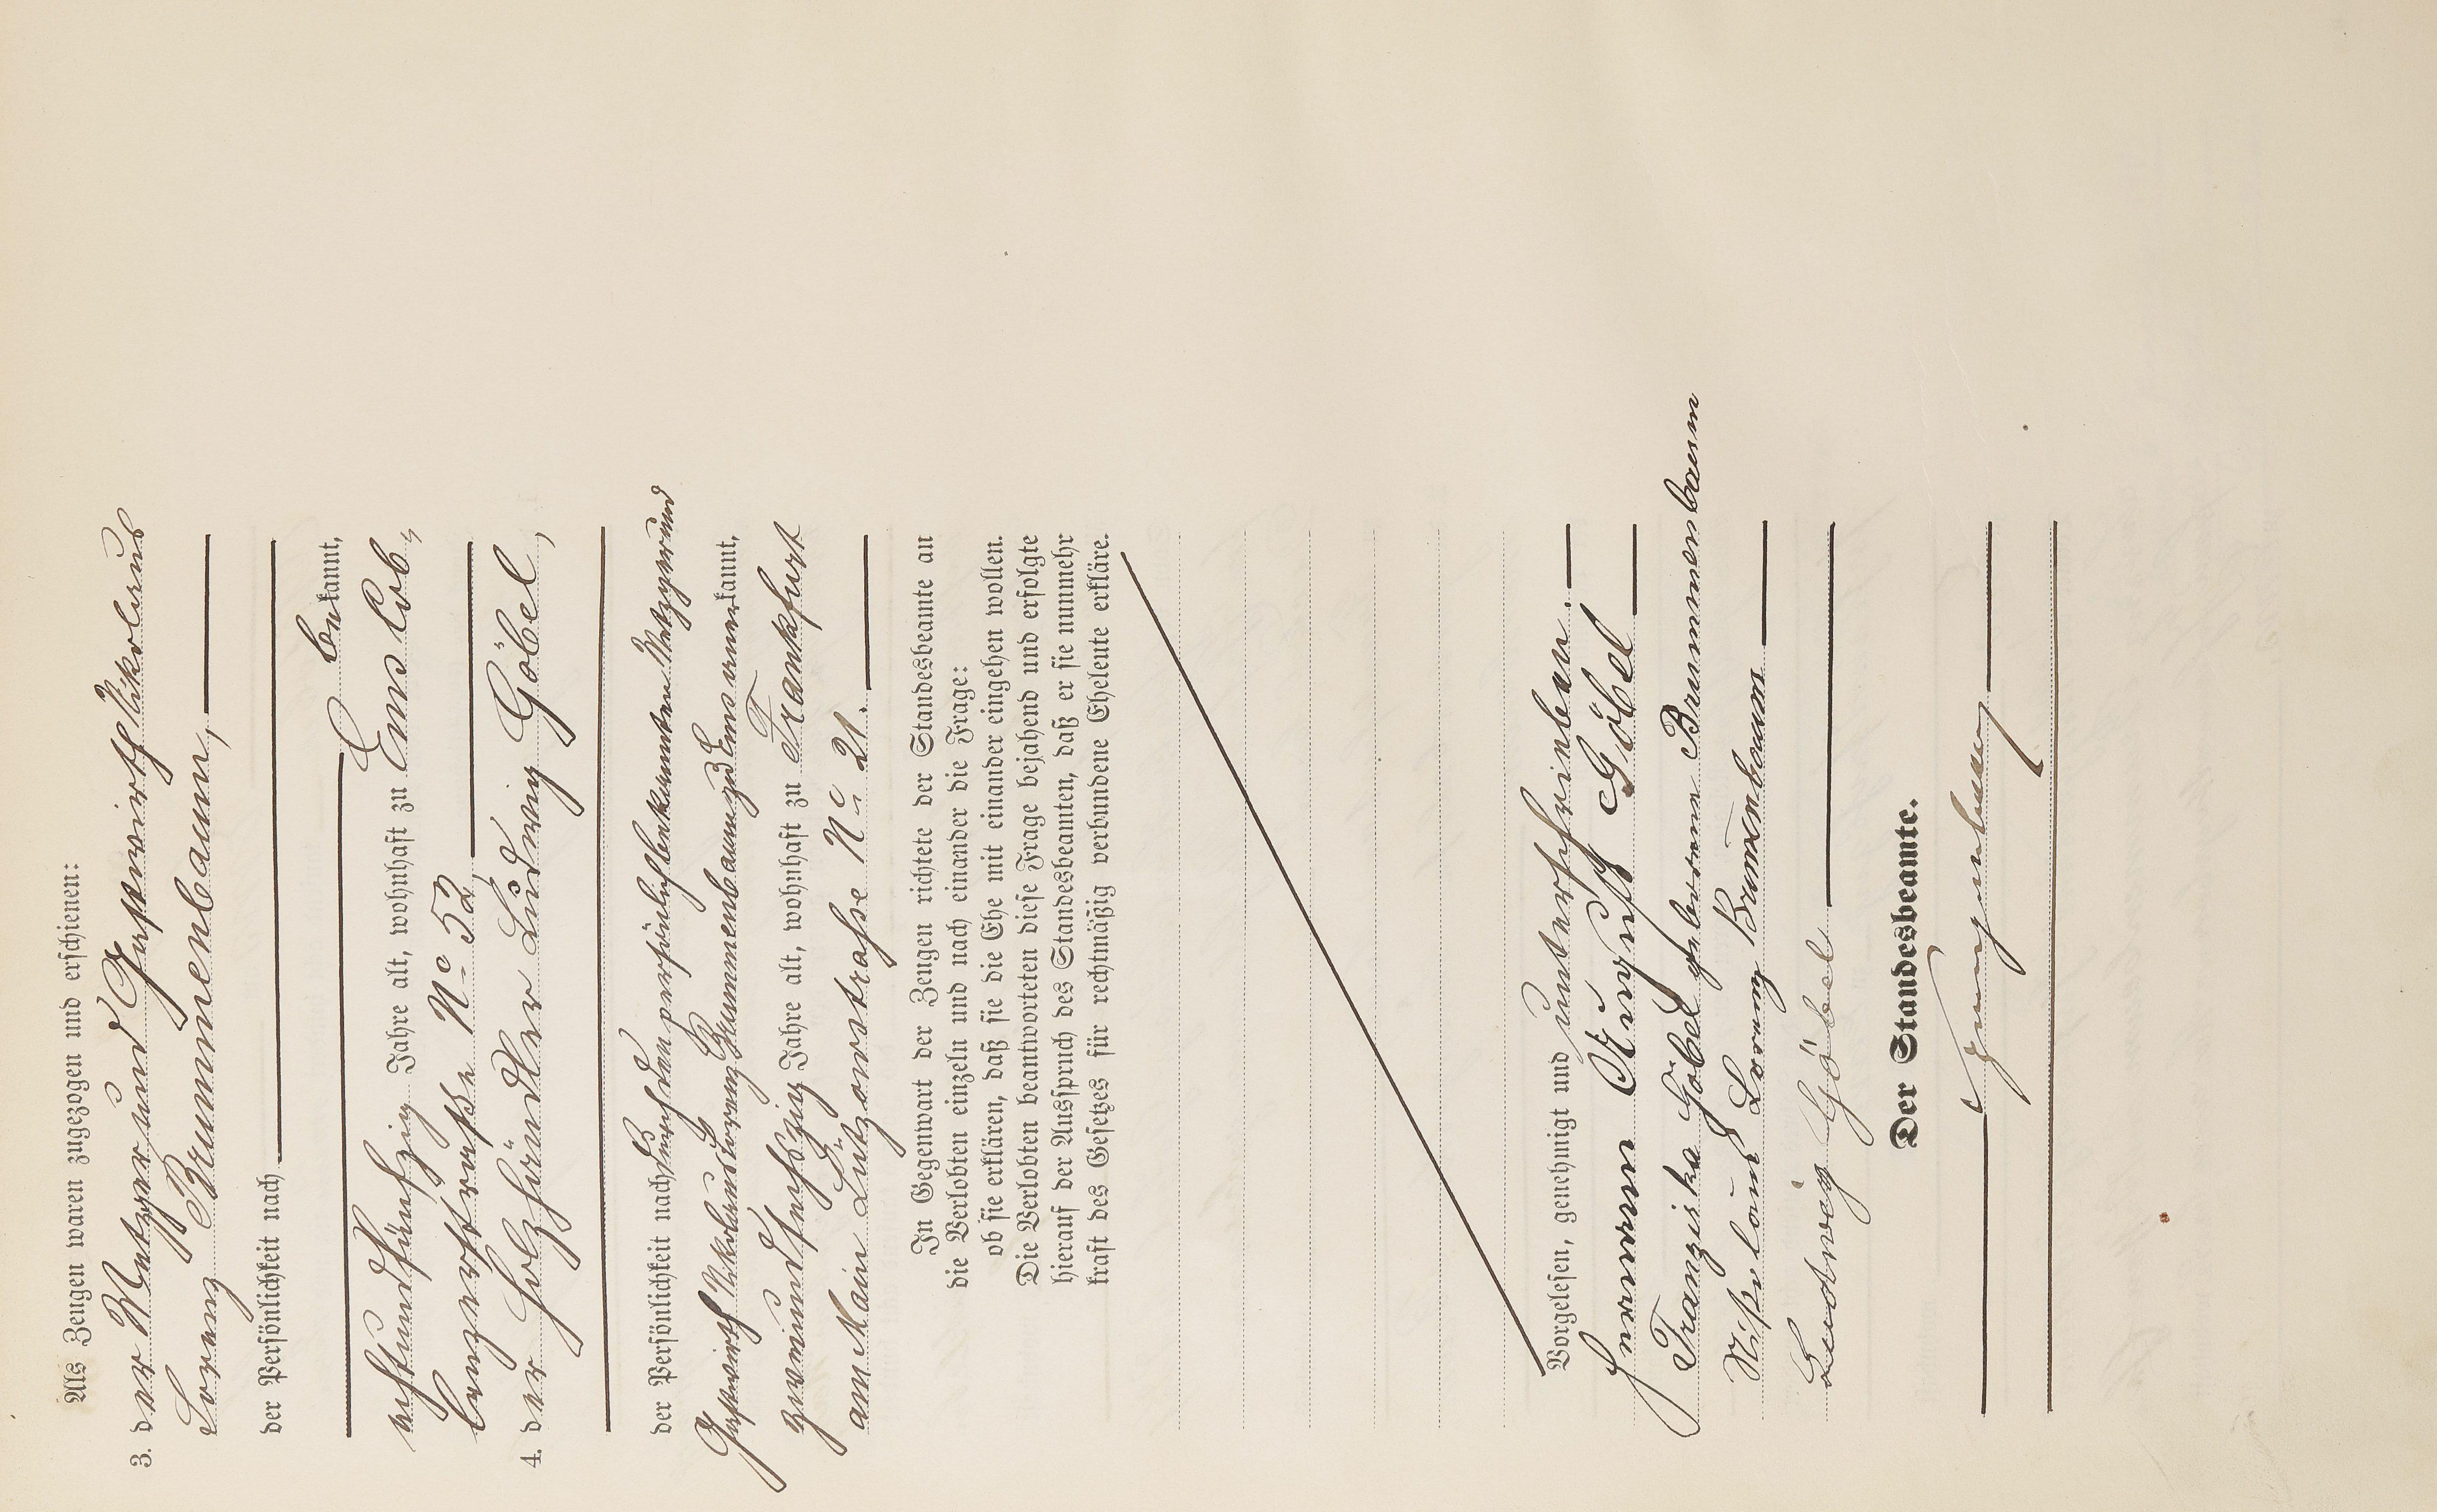 Als Zeugen waren zugezogen und erschienen:
3. der Metzger und Gastwirth Nikolaus
Lorenz Brummenbaum,
der Persönlichkeit nach
bekannt,
achtundfünfzig Jahre alt, wohnhaft zu Ems Cob-
lenzerstraße No 52,
4. der Holzhändler Ludwig Göbel,
der Persönlichkeit nach durch den persönlich bekannten Metzger und
Gastwirth Nikolaus Lorenz Brummenbaum zu Ems anerkannt,
zweiundsechszig Jahre alt, wohnhaft zu Frankfurt
am Main Lützowstraße No 21.
In Gegenwart der Zeugen richtete der Standesbeamte an
die Verlobten einzeln und nach einander die Frage:
ob sie erklären, daß sie die Ehe mit einander eingehen wollen.
Die Verlobten beantworteten diese Frage bejahend und erfolgte
hierauf der Ausspruch des Standesbeamten, daß er sie nunmehr
kraft des Gesetzes für rechtmäßig verbundene Eheleute erkläre.
Vorgelesen, genehmigt und unterschrieben.
Hermann August Göbel
Franziska Göbel geborene Brummenbaum
Lorenz Brummenbaum
Ludwig Göbel
Der Standesbeamte.